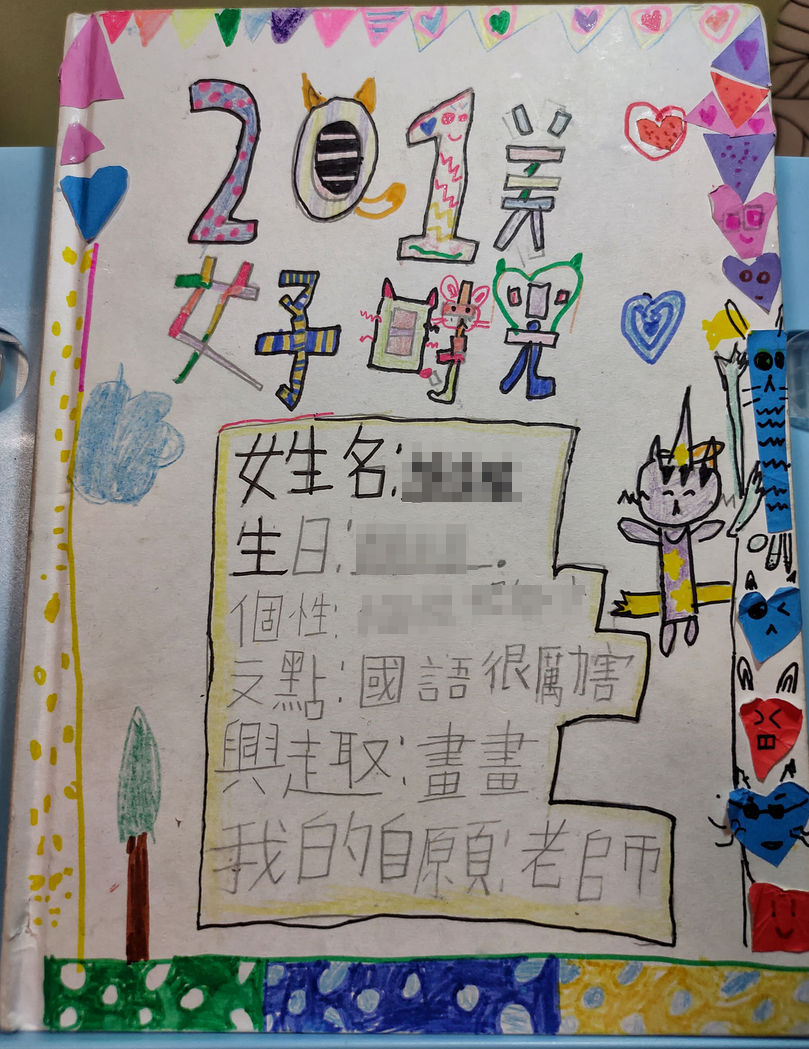 201美
好時光
姓名:
生日:
個性:
支點:國語很厲害
興趣:畫畫
我的自願:老師